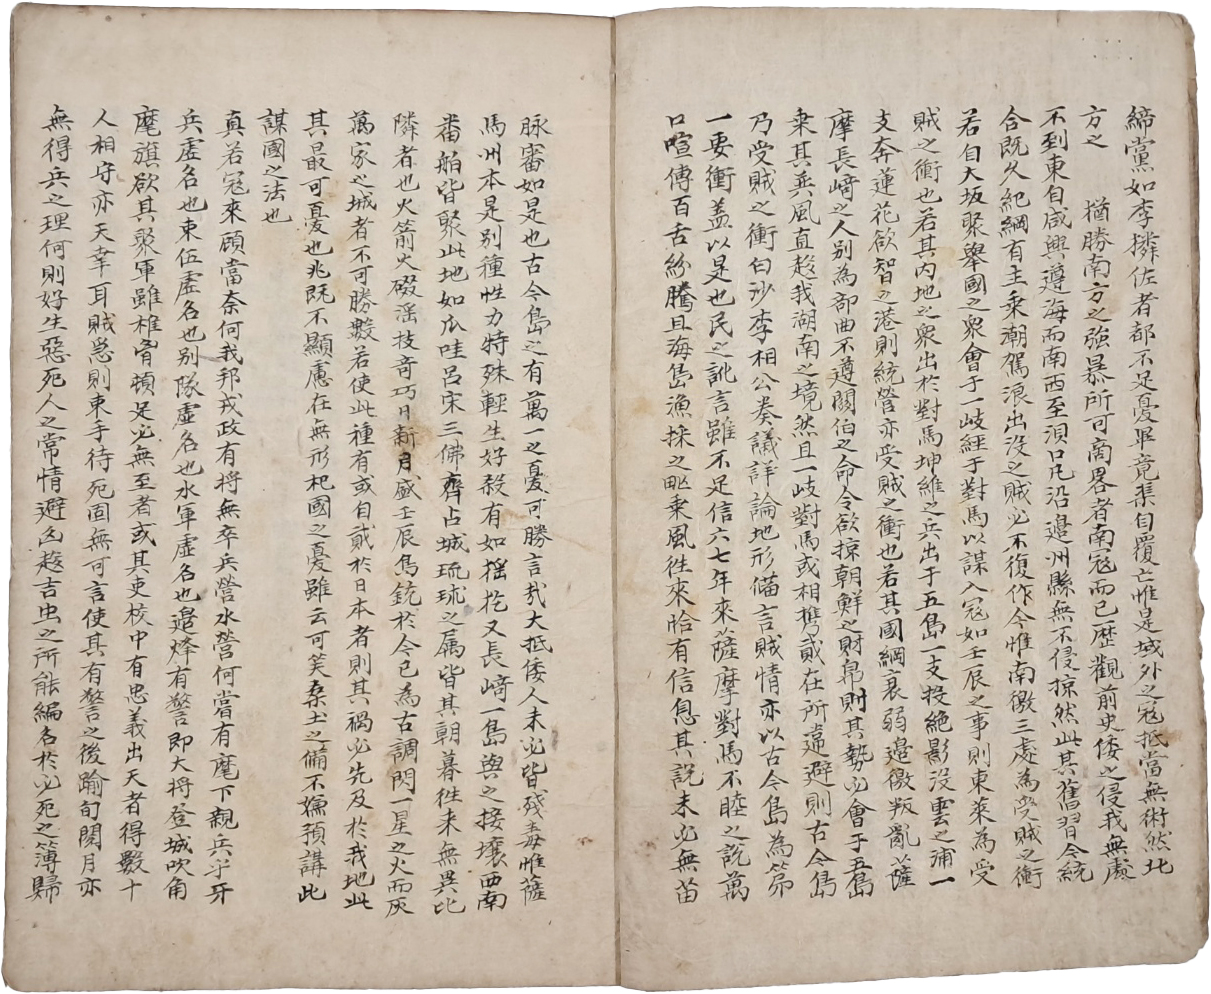 締黨如李㷠佐者都不足憂畢竟渠自覆亡惟是域外之冦抵當無術然北
方之 猶勝南方之強暴所可商畧者南冦而已歷觀前史倭之侵我無處
不到東自咸興遵海而南西至浿口凡沿邊州縣無不侵掠然此其舊習今統
合既久紀綱有主乘潮駕浪出沒之賊必不復作今惟南徼三處為受賊之衝
若自大坂聚舉國之衆會于一岐經于對馬以謀入冦如壬辰之事則東萊為受
賊之衝也若其內地之衆出於對馬坤維之兵出于五島一支投絕影沒雲之浦一
支奔蓮花欲智之港則統營亦受賊之衝也若其國綱衰弱邉徼叛亂薩
摩長﨑之人別為部曲不遵關伯之命令欲掠朝鮮之財帛則其勢必會于五島
乘其𠔃風直趍我湖南之境然且一岐對馬或相携貳在所當避則古今島
乃受賊之衝白沙李相公奏議詳論地形備言賊情亦以古今島為第
一要衝盖以是也民之訛言雖不足信六七年來薩摩對馬不睦之說萬
口喧傳百舌紛騰且海島漁採之氓乘風徃來恰有信息其說未必無苗
脉審如是也古今島之有萬一之憂可勝言㢤大抵倭人未必皆殘毒惟薩
馬州本是別種性力特殊輕生好殺有如猺犵又長﨑一島與之接壤西南
番舶皆聚此地如瓜哇呂宋三佛齊占城琉球之属皆其朝暮徃来無異比
隣者也火箭火礮謡技奇巧日新月盛壬辰鳥銃於今已為古調閃一星之火而灰
萬家之城者不可勝數若使此種有或自貳於日本者則其禍必先及於我地此
其最可憂也兆既不顯慮在無形杞國之憂雖云可笑桑土之備不嫌預講此
謀國之法也
真若冦來顧當奈何我邦戎政有將無卒兵營水營何嘗有麾下親兵乎牙
兵虛名也束伍虛名也別隊虛名也水軍虛名也邉烽有警即大將登城吹角
麾旗欲其聚軍雖椎胷頓足必無至者或其吏校中有忠義出天者得數十
人相守亦天幸耳賊怱則束手待死固無可言使其有警之後踰旬閱月亦
無得兵之理何則好生惡死人之常情避凶趍吉虫之所能編名於必死之簿歸